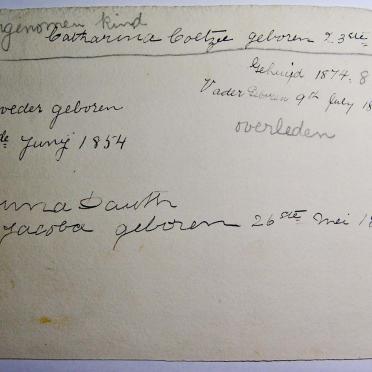 ngenomen kind
Catharina Coetzee geboren 23ste
Gehuijd 1874. 8
Vader Geboren 9th July 18
overleden
oeder geboren
de Junij 1854
nna Sauth
Jacoba geboren 26ste Mei 18